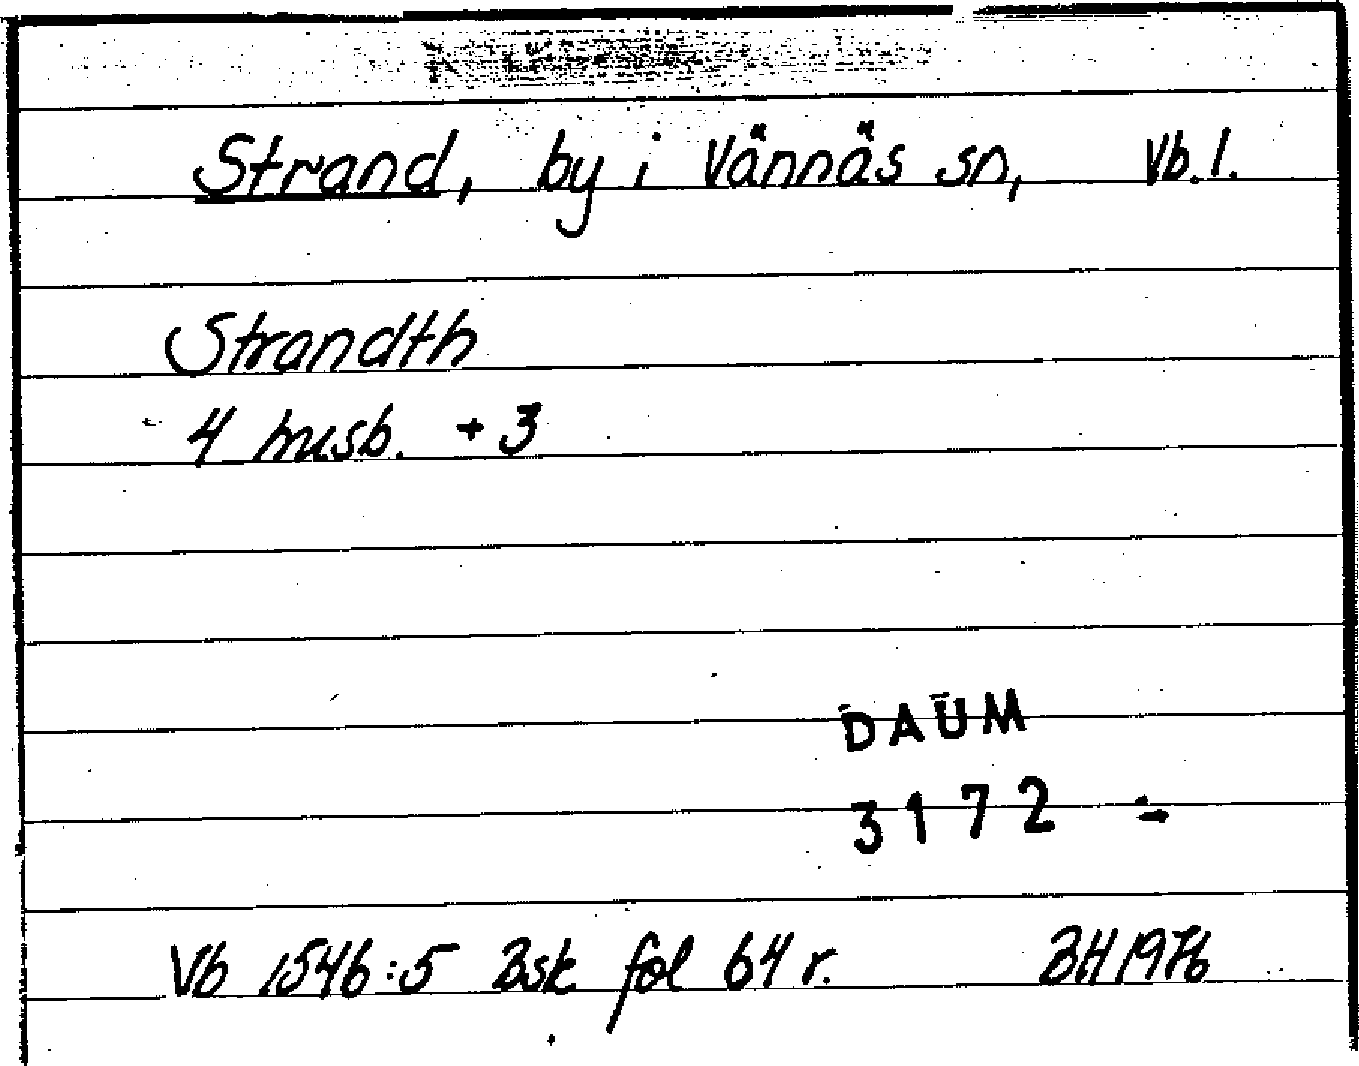 Strand, by i Vännäs sn, Vb. l.
Strandth
4 husb. + 3
DAUM
3172
Vb 1546:5 Bsk fol 64 r. BH 1976